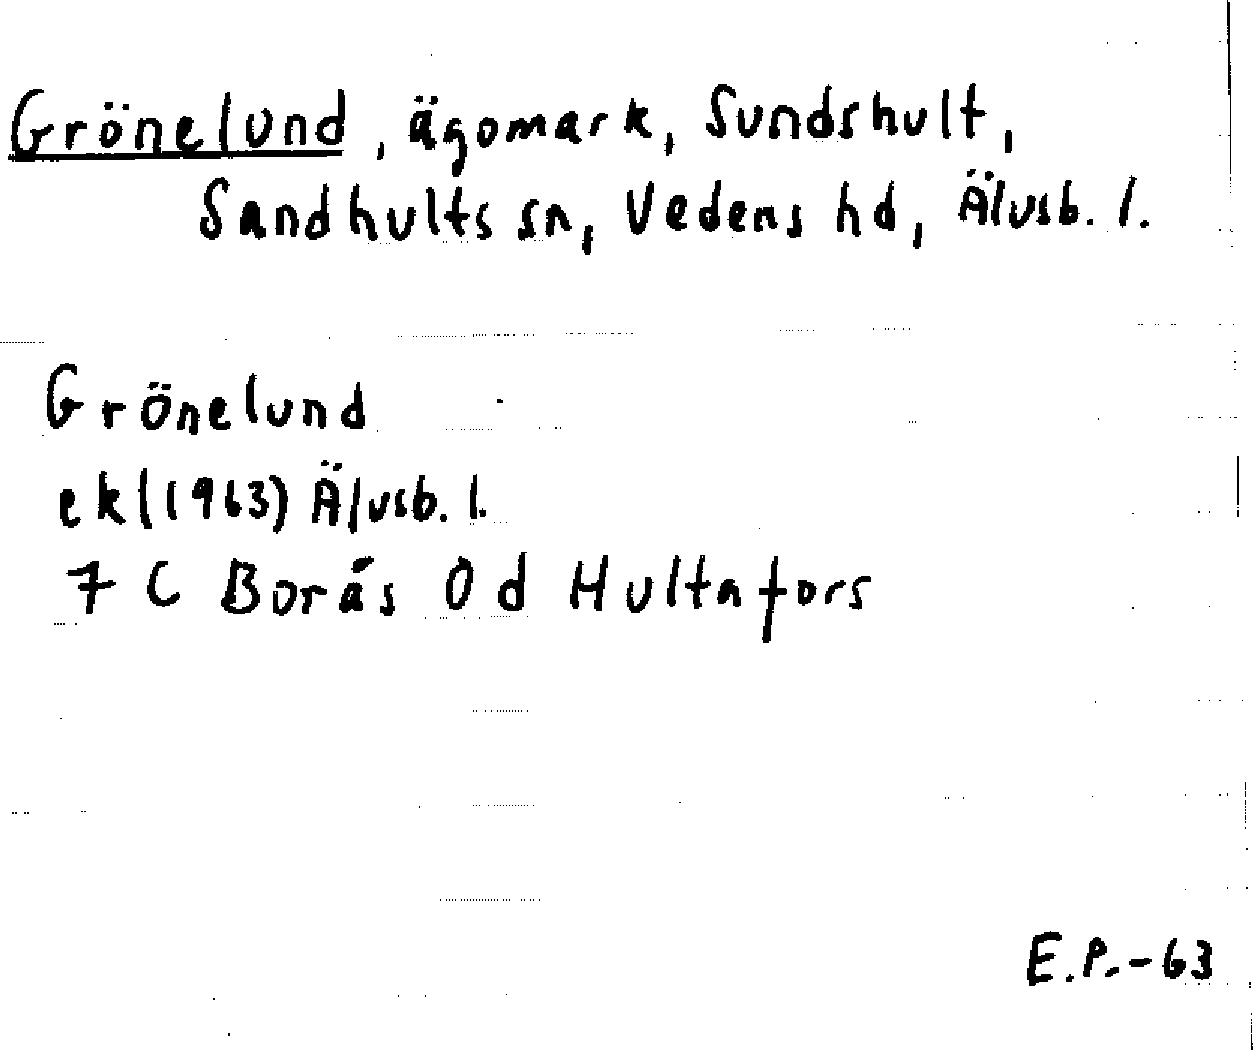 Grönelund, ägomark, Sundshult,
Sandhults sn, Vedens hd, Älvsb. l.
Grönelund
ek (1963) Älvsb. l.
7 C Borås 0 d Hultafors
E.P.-63